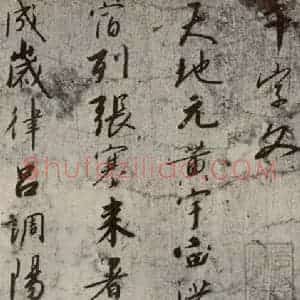 千字文
天地元黄宇宙洪
宿列張寒来暑
成歲律吕調陽
Shufaziliao.com